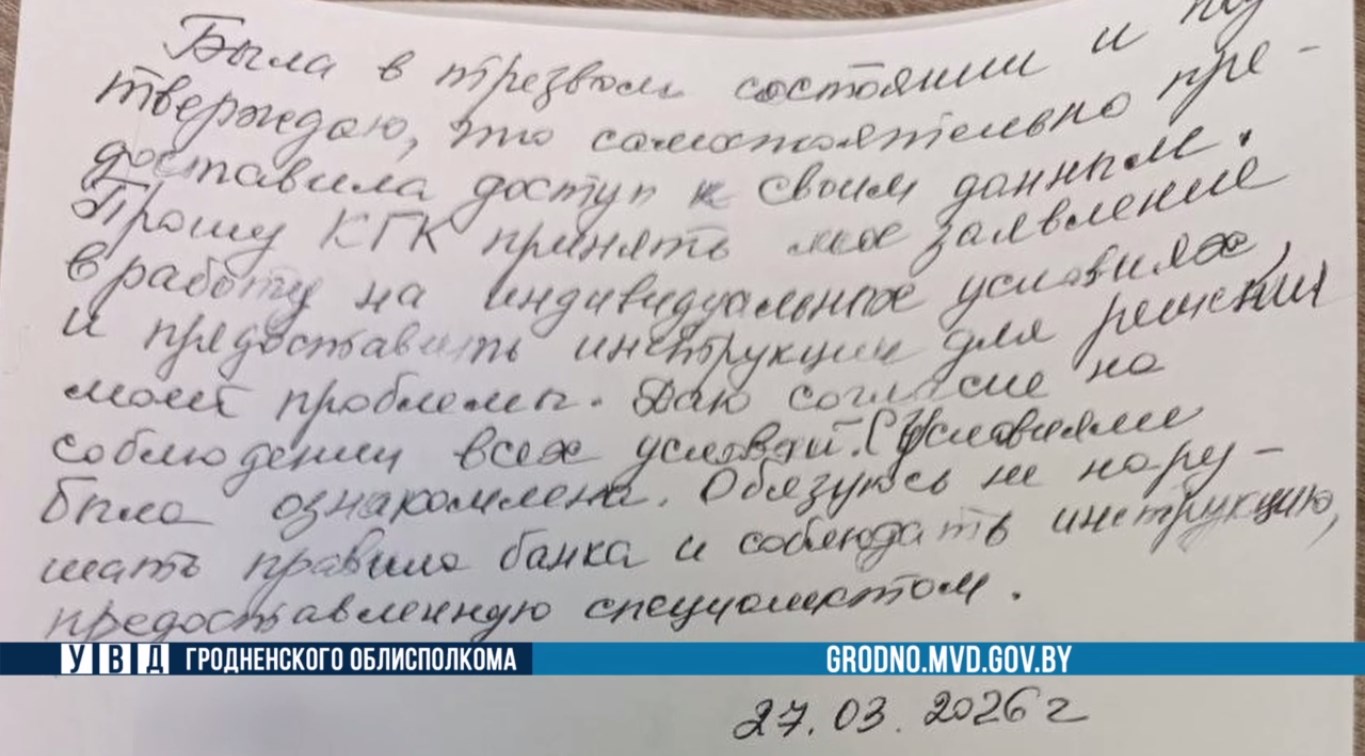 Была в трезвом состоянии и под
тверждаю, что самостоятельно пре-
доставила доступ к своим данным.
Прошу КГК принять мое заявление
в работу на индивидуальных условиях,
и предоставить инструкции для решения
моей проблемы. Даю согласие на
соблюдении всех условий. (Условиями
была ознакомлена. Обязуюсь не нару-
шать правила банка и соблюдать инструкцию,
предоставленную специалистом.
УВД ГРОДНЕНСКОГО ОБЛИСПОЛКОМА GRODNO.MVD.GOV.BY
27.03.2026 г